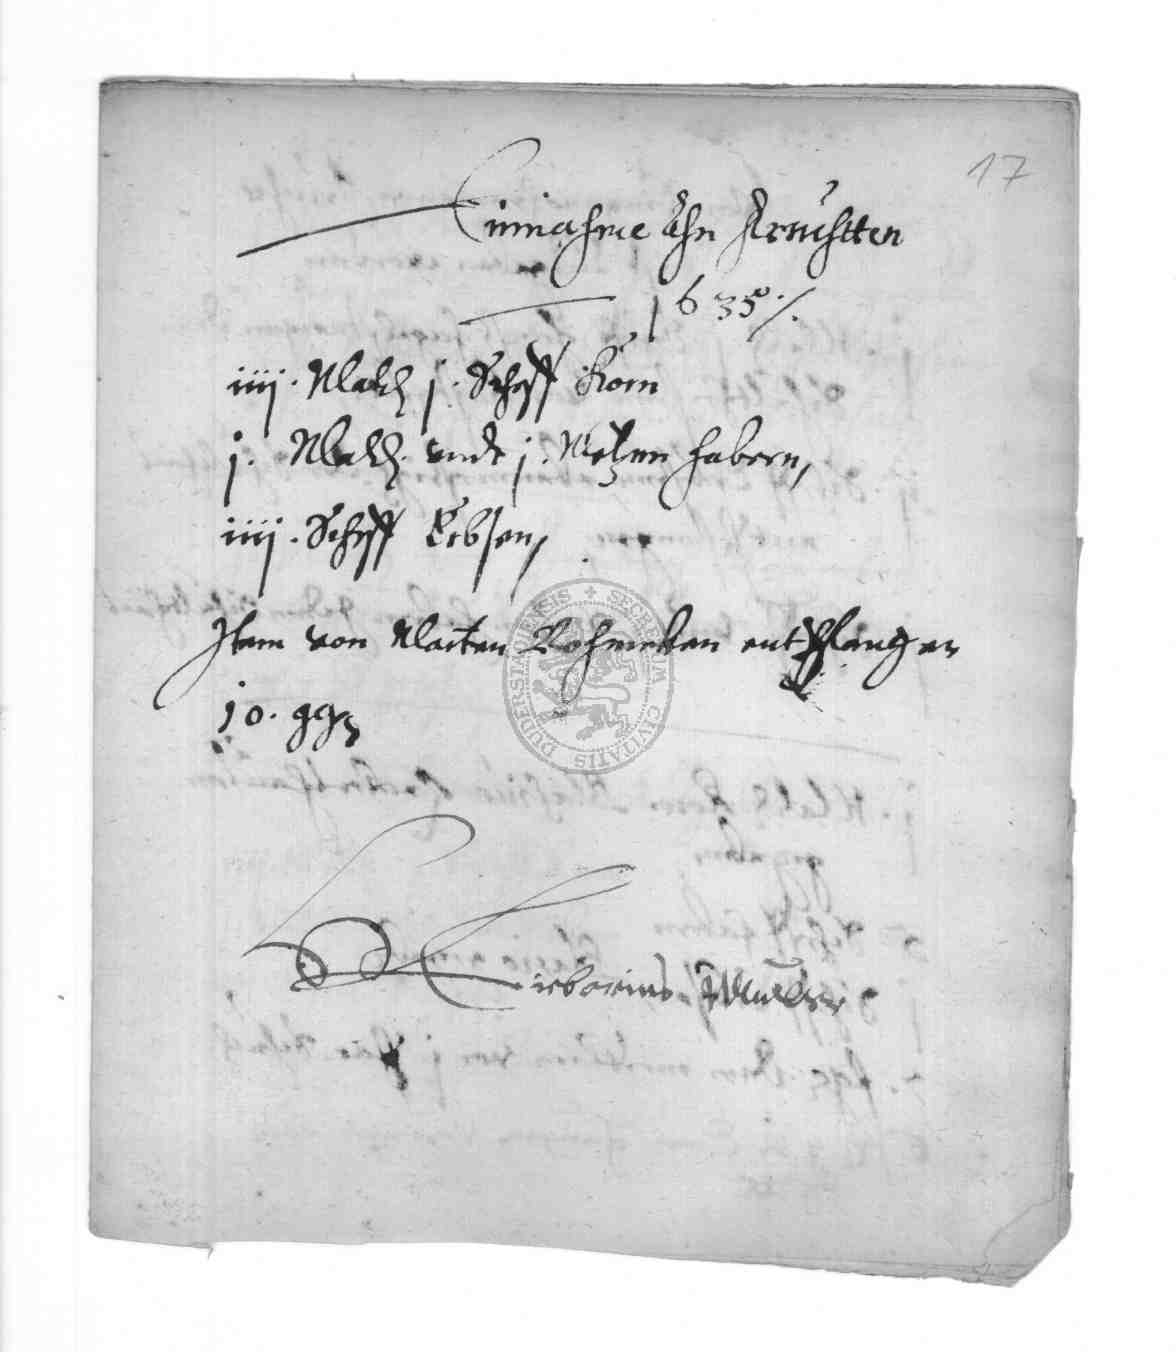 17
Einnahme Ahn Fruchtten
1635 /.
iiij. Maltz j. Scheff Korn
j. Maltz. undt j. Metzen habern,
iiij. Scheff Erbsen,
Item von Marten entpfangen
10. ggl
Lieborius Müller
SECRETUM CIVITATIS DUDERSTADIENSIS